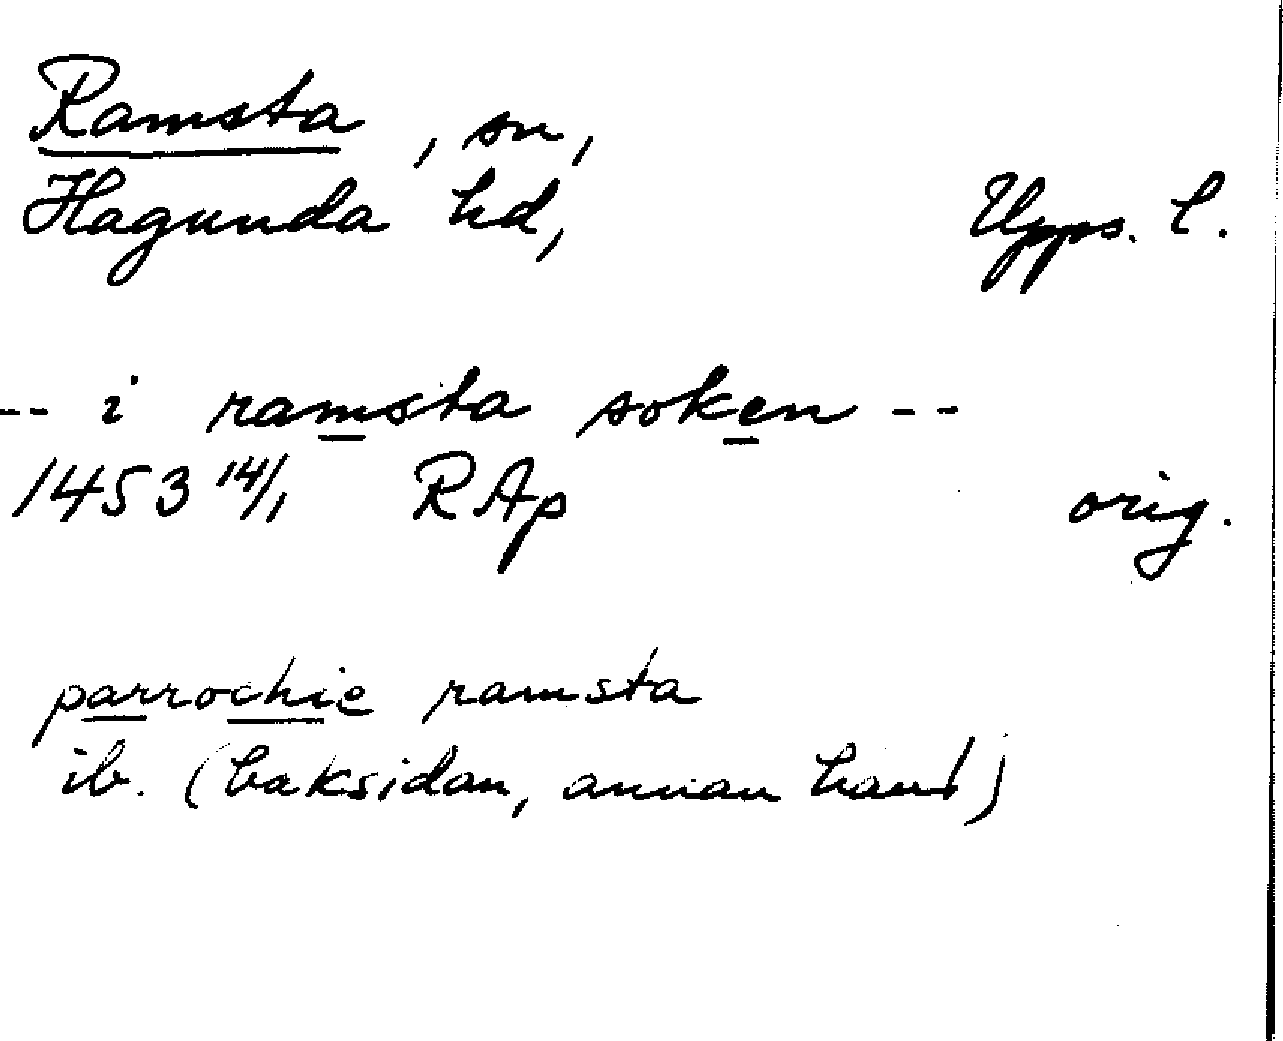 Ramsta, sn,
Hagunda hd, Upps. l.
-- i ramsta soken --
1453 14/1 RAp orig.
parrochie ramsta
ib. (baksidan, annan hand)